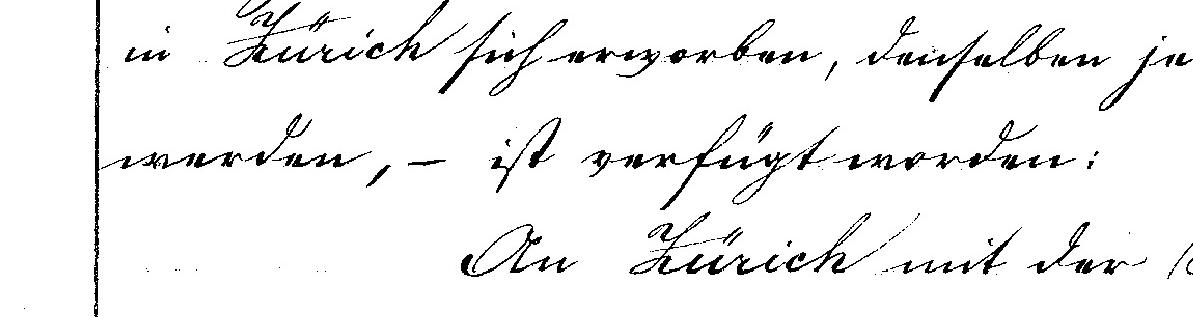 in Zürich sich erworben, denselben je
werden, – ist verfügt worden:
An Zürich mit der